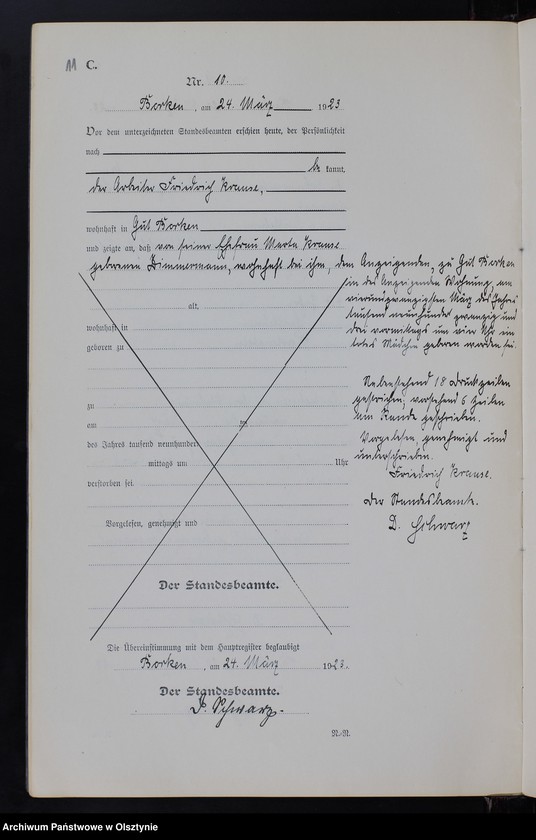 11
C.
Nr. 10.
Borken, am 24. März 1923
Vor dem unterzeichneten Standesbeamten erschien heute, der Persönlichkeit
nach
be kannt,
der Arbeiter Friedrich Krause,
wohnhaft in Gut Borken
und zeigte an, daß von seiner Ehefrau Marta Krause
geborenen Zimmermann, wohnhaft bei ihm, dem Anzeigenden, zu Gut Borken
in des Anzeigenden Wohnung, am
vierundzwanzigsten März des Jahres
tausend neunhundert zwanzig und
drei vormittags um vier Uhr ein
totes Mädchen geboren worden sei.
alt,
wohnhaft in
geboren zu
zu
am ten
des Jahres tausend neunhundert
mittags um Uhr
verstorben sei.
Vorgelesen, genehmigt und
Der Standesbeamte.
Nebenstehend 18 Druckzeilen
gestrichen, vorstehend 5 Zeilen
am Rande geschrieben.
Vorgelesen, genehmigt und
unterschrieben.
Friedrich Krause.
Der Standesbeamte.
D. Schwarz
Die Übereinstimmung mit dem Hauptregister beglaubigt
Borken, am 24. März 1923.
Der Standesbeamte.
D. Schwarz.
N.-N.
Archiwum Państwowe w Olsztynie